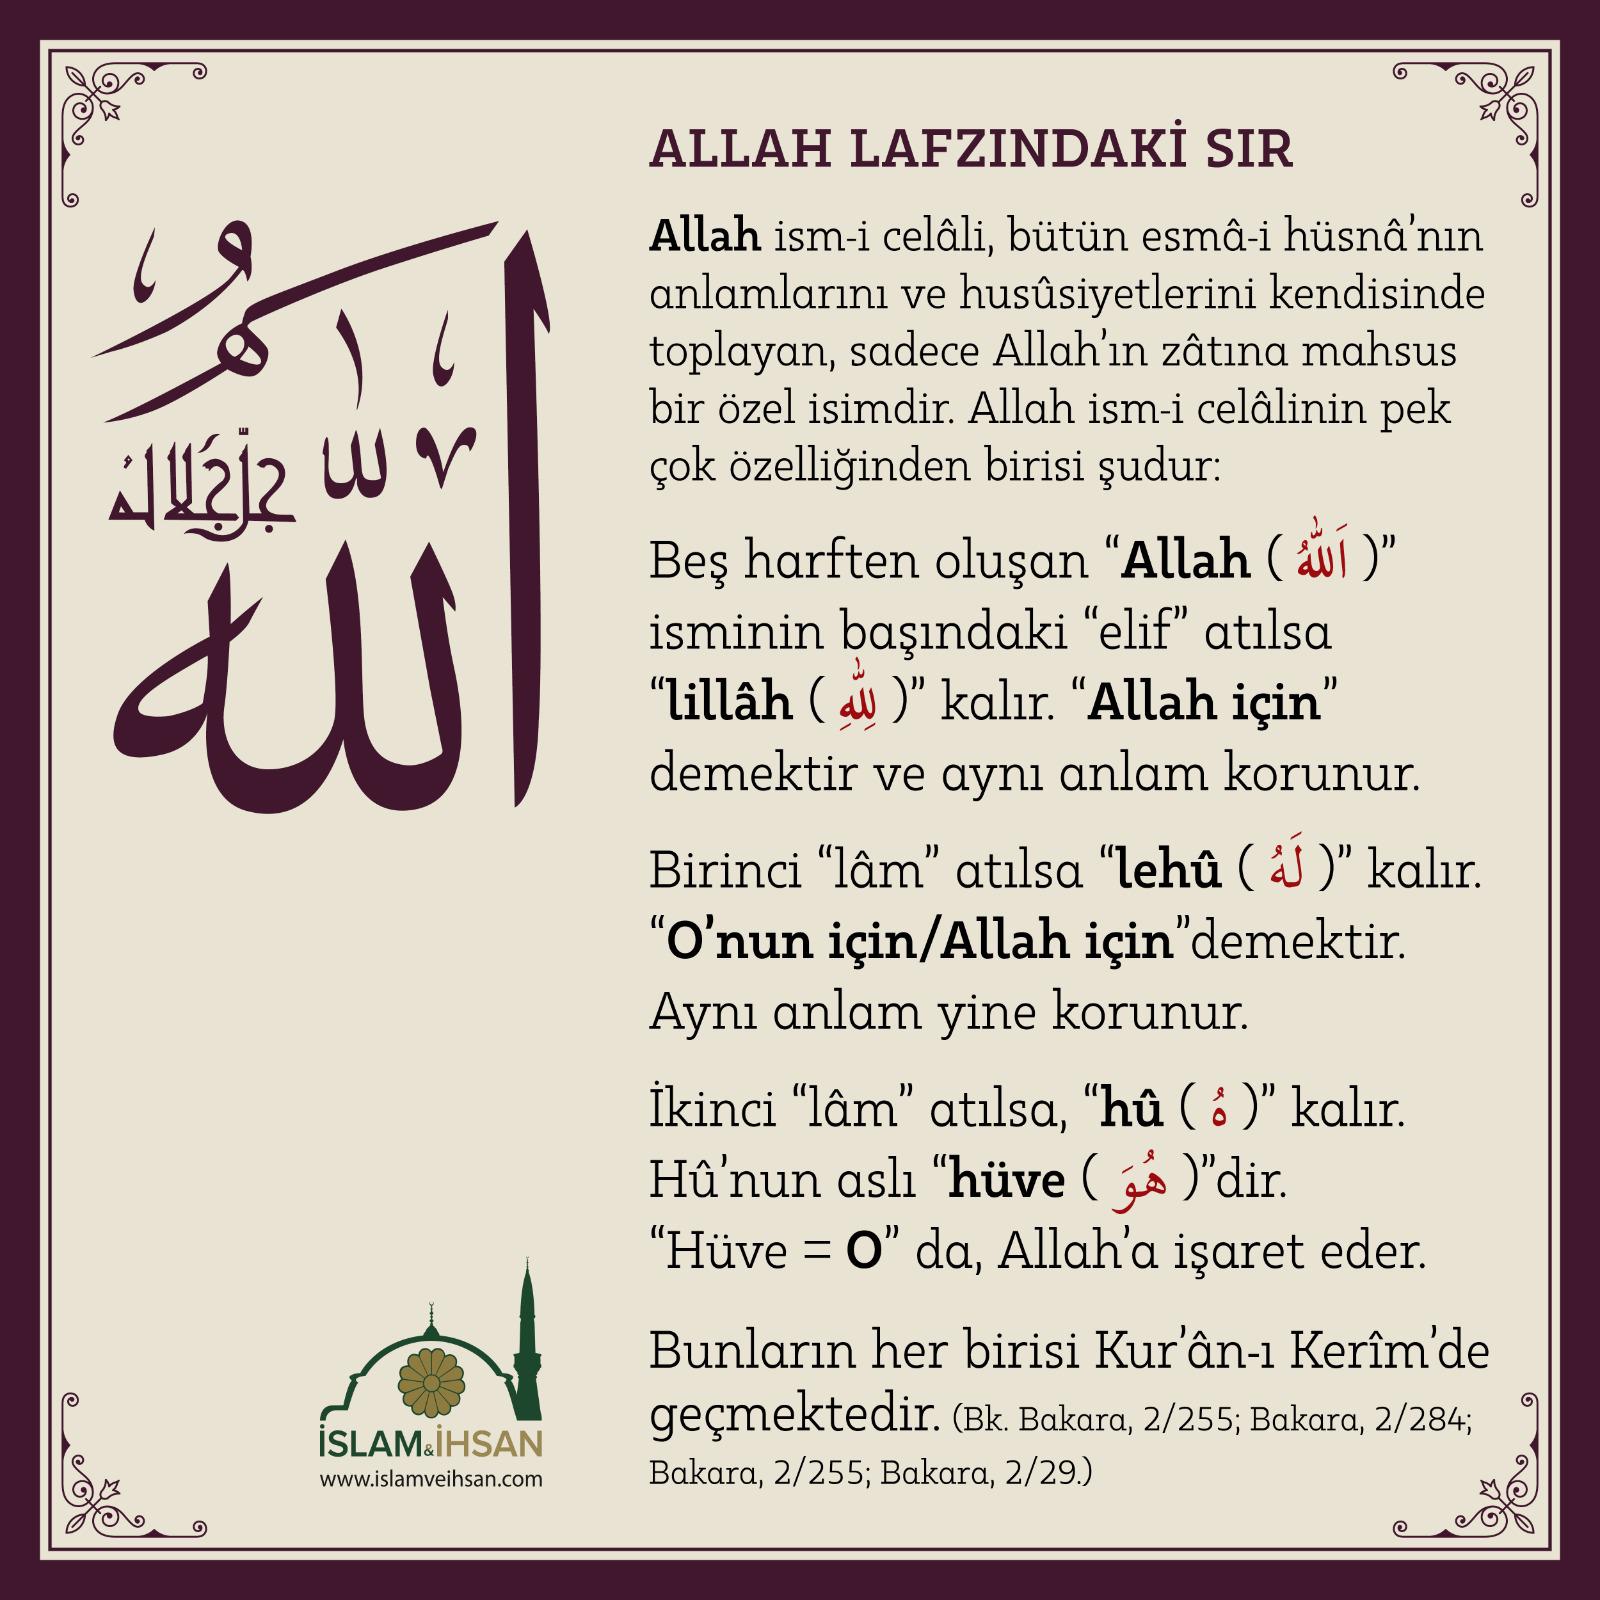 ALLAH LAFZINDAKİ SIR
Allah ism-i celâli, bütün esmâ-i hüsnâ’nın
anlamlarını ve husûsiyetlerini kendisinde
toplayan, sadece Allah’ın zâtına mahsus
bir özel isimdir. Allah ism-i celâlinin pek
çok özelliğinden birisi şudur:
Beş harften oluşan “Allah ( اَللّٰهُ )”
isminin başındaki “elif” atılsa
“lillâh ( لِلّٰهِ )” kalır. “Allah için”
demektir ve aynı anlam korunur.
Birinci “lâm” atılsa “lehû ( لَهُ )” kalır.
“O’nun için/Allah için”demektir.
Aynı anlam yine korunur.
İkinci “lâm” atılsa, “hû ( هُ )” kalır.
Hû’nun aslı “hüve ( هُوَ )”dir.
“Hüve = O” da, Allah’a işaret eder.
Bunların her birisi Kur’ân-ı Kerîm’de
geçmektedir. (Bk. Bakara, 2/255; Bakara, 2/284;
Bakara, 2/255; Bakara, 2/29.)
الله
جل جلاله
İSLAM&İHSAN
www.islamveihsan.com